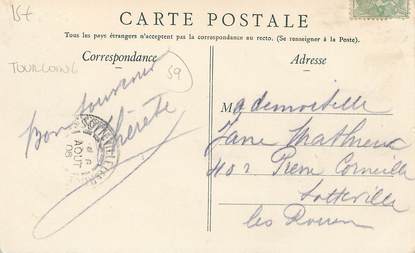 15+
CARTE POSTALE
Tous les pays étrangers n'acceptent pas la correspondance au recto. (Se renseigner à la Poste).
Correspondance
Adresse
TOURCOING
59
Bon souvenir
Mademoiselle
Jane Mathieu
402 Pierre Corneille
Sotteville
les Rouen
AOUT
08